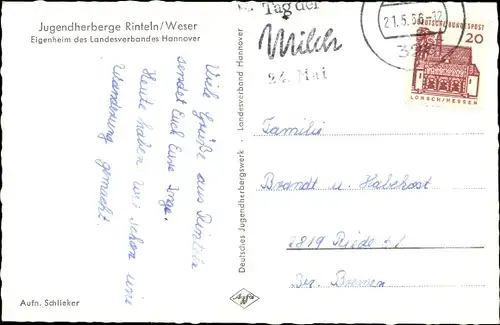 Jugendherberge Rinteln/Weser
Eigenheim des Landesverbandes Hannover
Viele Grüße aus Rinteln
sendet Euch Eure Inge.
Heute haben wir schon eine
Wanderung gemacht.
Aufn. Schlieker
Deutsches Jugendherbergswerk · Landesverband Hannover
Tag der
Milch
24. Mai
21.5.66
DEUTSCHE BUNDESPOST
20
LORSCH/HESSEN
Familie
Brandt u. Habekost
2819 Riede
Bez. Bremen